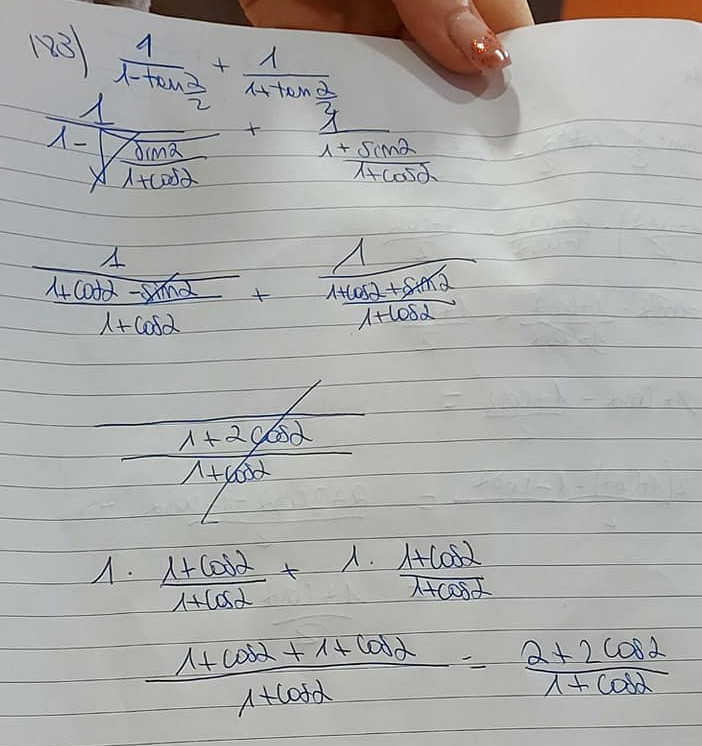 183) 1/(1-tan α/2) + 1/(1+tan α/2)
1/(1- sinα/(1+cosα)) + 1/(1+ sinα/(1+cosα))
1/((1+cosα-sinα)/(1+cosα)) + 1/((1+cosα+sinα)/(1+cosα))
(1+2cosα)/(1+cosα)
1 · (1+cosα)/(1+cosα) + 1 · (1+cosα)/(1+cosα)
(1+cosα+1+cosα)/(1+cosα) = (2+2cosα)/(1+cosα)